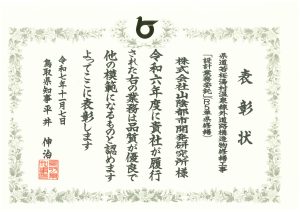 表彰状
県道若桜湯村温泉線外道路構造物修繕工事
「設計業務委託」（R5県単修繕）
株式会社山陰都市開発研究所様
令和六年度に貴社が履行
された右の業務は品質が優良で
他の模範になるものと認めます
よってここに表彰します
令和七年十一月七日
鳥取県知事平井伸治